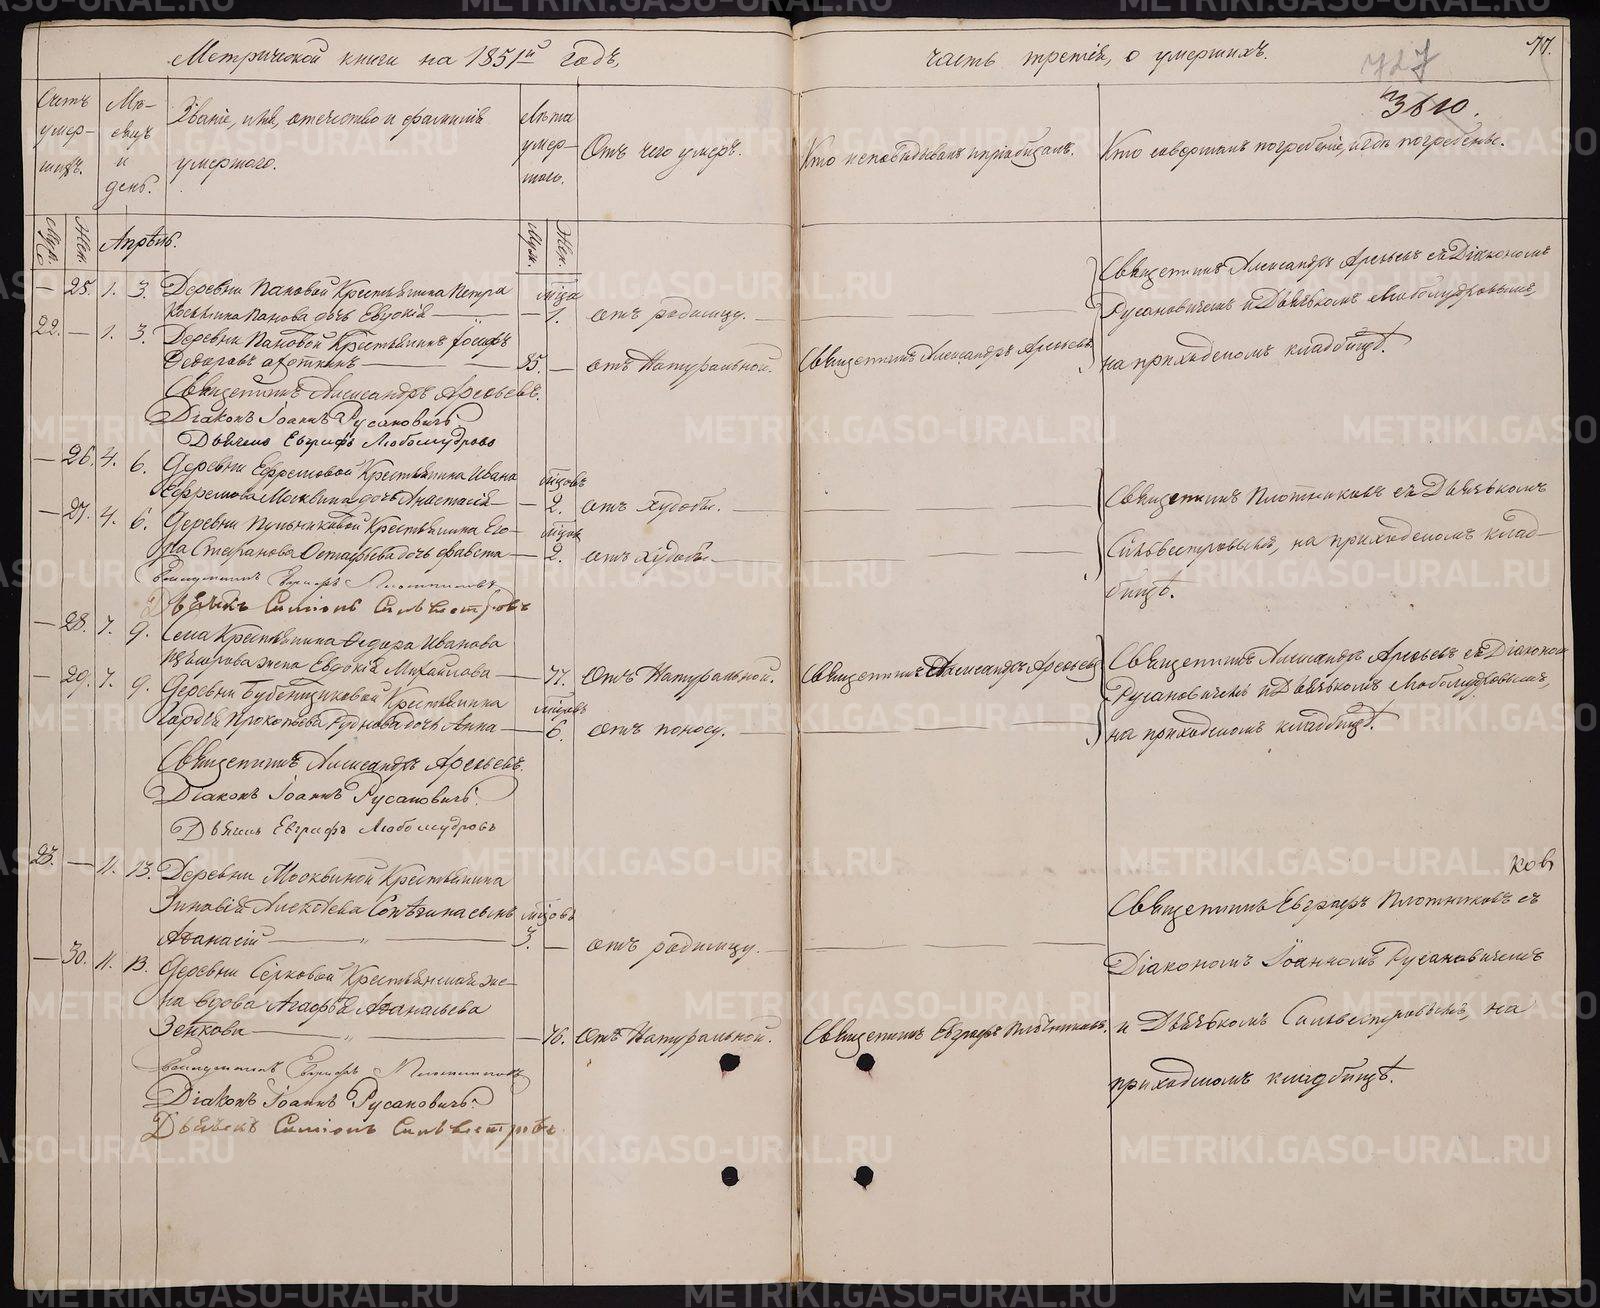 Метрической книги на 1851й годъ,
часть третія, о умершихъ.
77.
727
3610.
Счетъ умер-шихъ.
Мѣ-сяцъ и день.
Званіе, имя, отечество и фамилія умершаго.
Лѣта умер-шаго.
Отъ чего умеръ.
Кто исповѣдывалъ и пріобщалъ.
Кто совершалъ погребеніе, и гдѣ погребены.
Муж.
Жен.
Апрѣль.
Муж.
Жен.
— 25. 1. 3. Деревни Пановой Крестьянина Петра
Панова дочь Евдокія — мца 1. отъ родимцу. —
22. — 1. 3. Деревни Пановой Крестьянинъ Іосифъ
Ѳедоровъ — 85. — отъ Натуральной. Священникъ Александръ Арефьевъ
Священникъ Александръ Арефьевъ съ Діакономъ
Русановичемъ и Дьячкомъ Любомудровымъ,
на приходскомъ кладбищѣ.
Священникъ Александръ Арефьевъ.
Діаконъ Іоаннъ Русановичъ
Дьячекъ Евграфъ Любомудровъ
— 26. 4. 6. Деревни Ефремовой Крестьянина Ивана
Ефремова Москвина дочь Анастасія — мцовъ 2. отъ худобы. —
— 27. 4. 6. Деревни Крестьянина Его-
ра Степанова дочь — мцов 2. отъ худобы —
Священникъ Плотниковъ съ Дьячкомъ
Сильвестровымъ, на приходскомъ клад-
бищѣ.
Священникъ Евграфъ Плотниковъ
Дьячекъ Симеонъ Сильвестровъ
— 28. 7. 9. Села Крестьянина Ѳедора Иванова
жена Евдокія Михайлова — 77. Отъ Натуральной. Священникъ Александръ Арефьевъ
— 29. 7. 9. Деревни Бубенщиковой Крестьянина
Гордѣя Прокопьева дочь Анна — мцовъ 6. отъ поносу. —
Священникъ Александръ Арефьевъ съ Діакономъ
Русановичемъ и Дьячкомъ Любомудровымъ,
на приходскомъ кладбищѣ.
Священникъ Александръ Арефьевъ.
Діаконъ Іоаннъ Русановичъ.
Дьячекъ Евграфъ Любомудровъ
23. — 11. 13. Деревни Москвиной Крестьянина
Зиновія Алексѣева сынъ мцовъ
Аѳанасій — 3. — отъ родимцу. —
— 30. 11. 13. Деревни Серковой Крестьянская же-
на вдова Агафья Аѳанасьева
Зенкова — 76. Отъ Натуральной. Священникъ Евграфъ Плотниковъ,
ковъ
Священникъ Евграфъ Плотниковъ съ
Діакономъ Іоанномъ Русановичемъ
и Дьячкомъ Сильвестровымъ, на
приходскомъ кладбищѣ.
Священникъ Евграфъ Плотниковъ
Діаконъ Іоаннъ Русановичъ.
Дьячекъ Симеонъ Сильвестровъ
METRIKI.GASO-URAL.RU